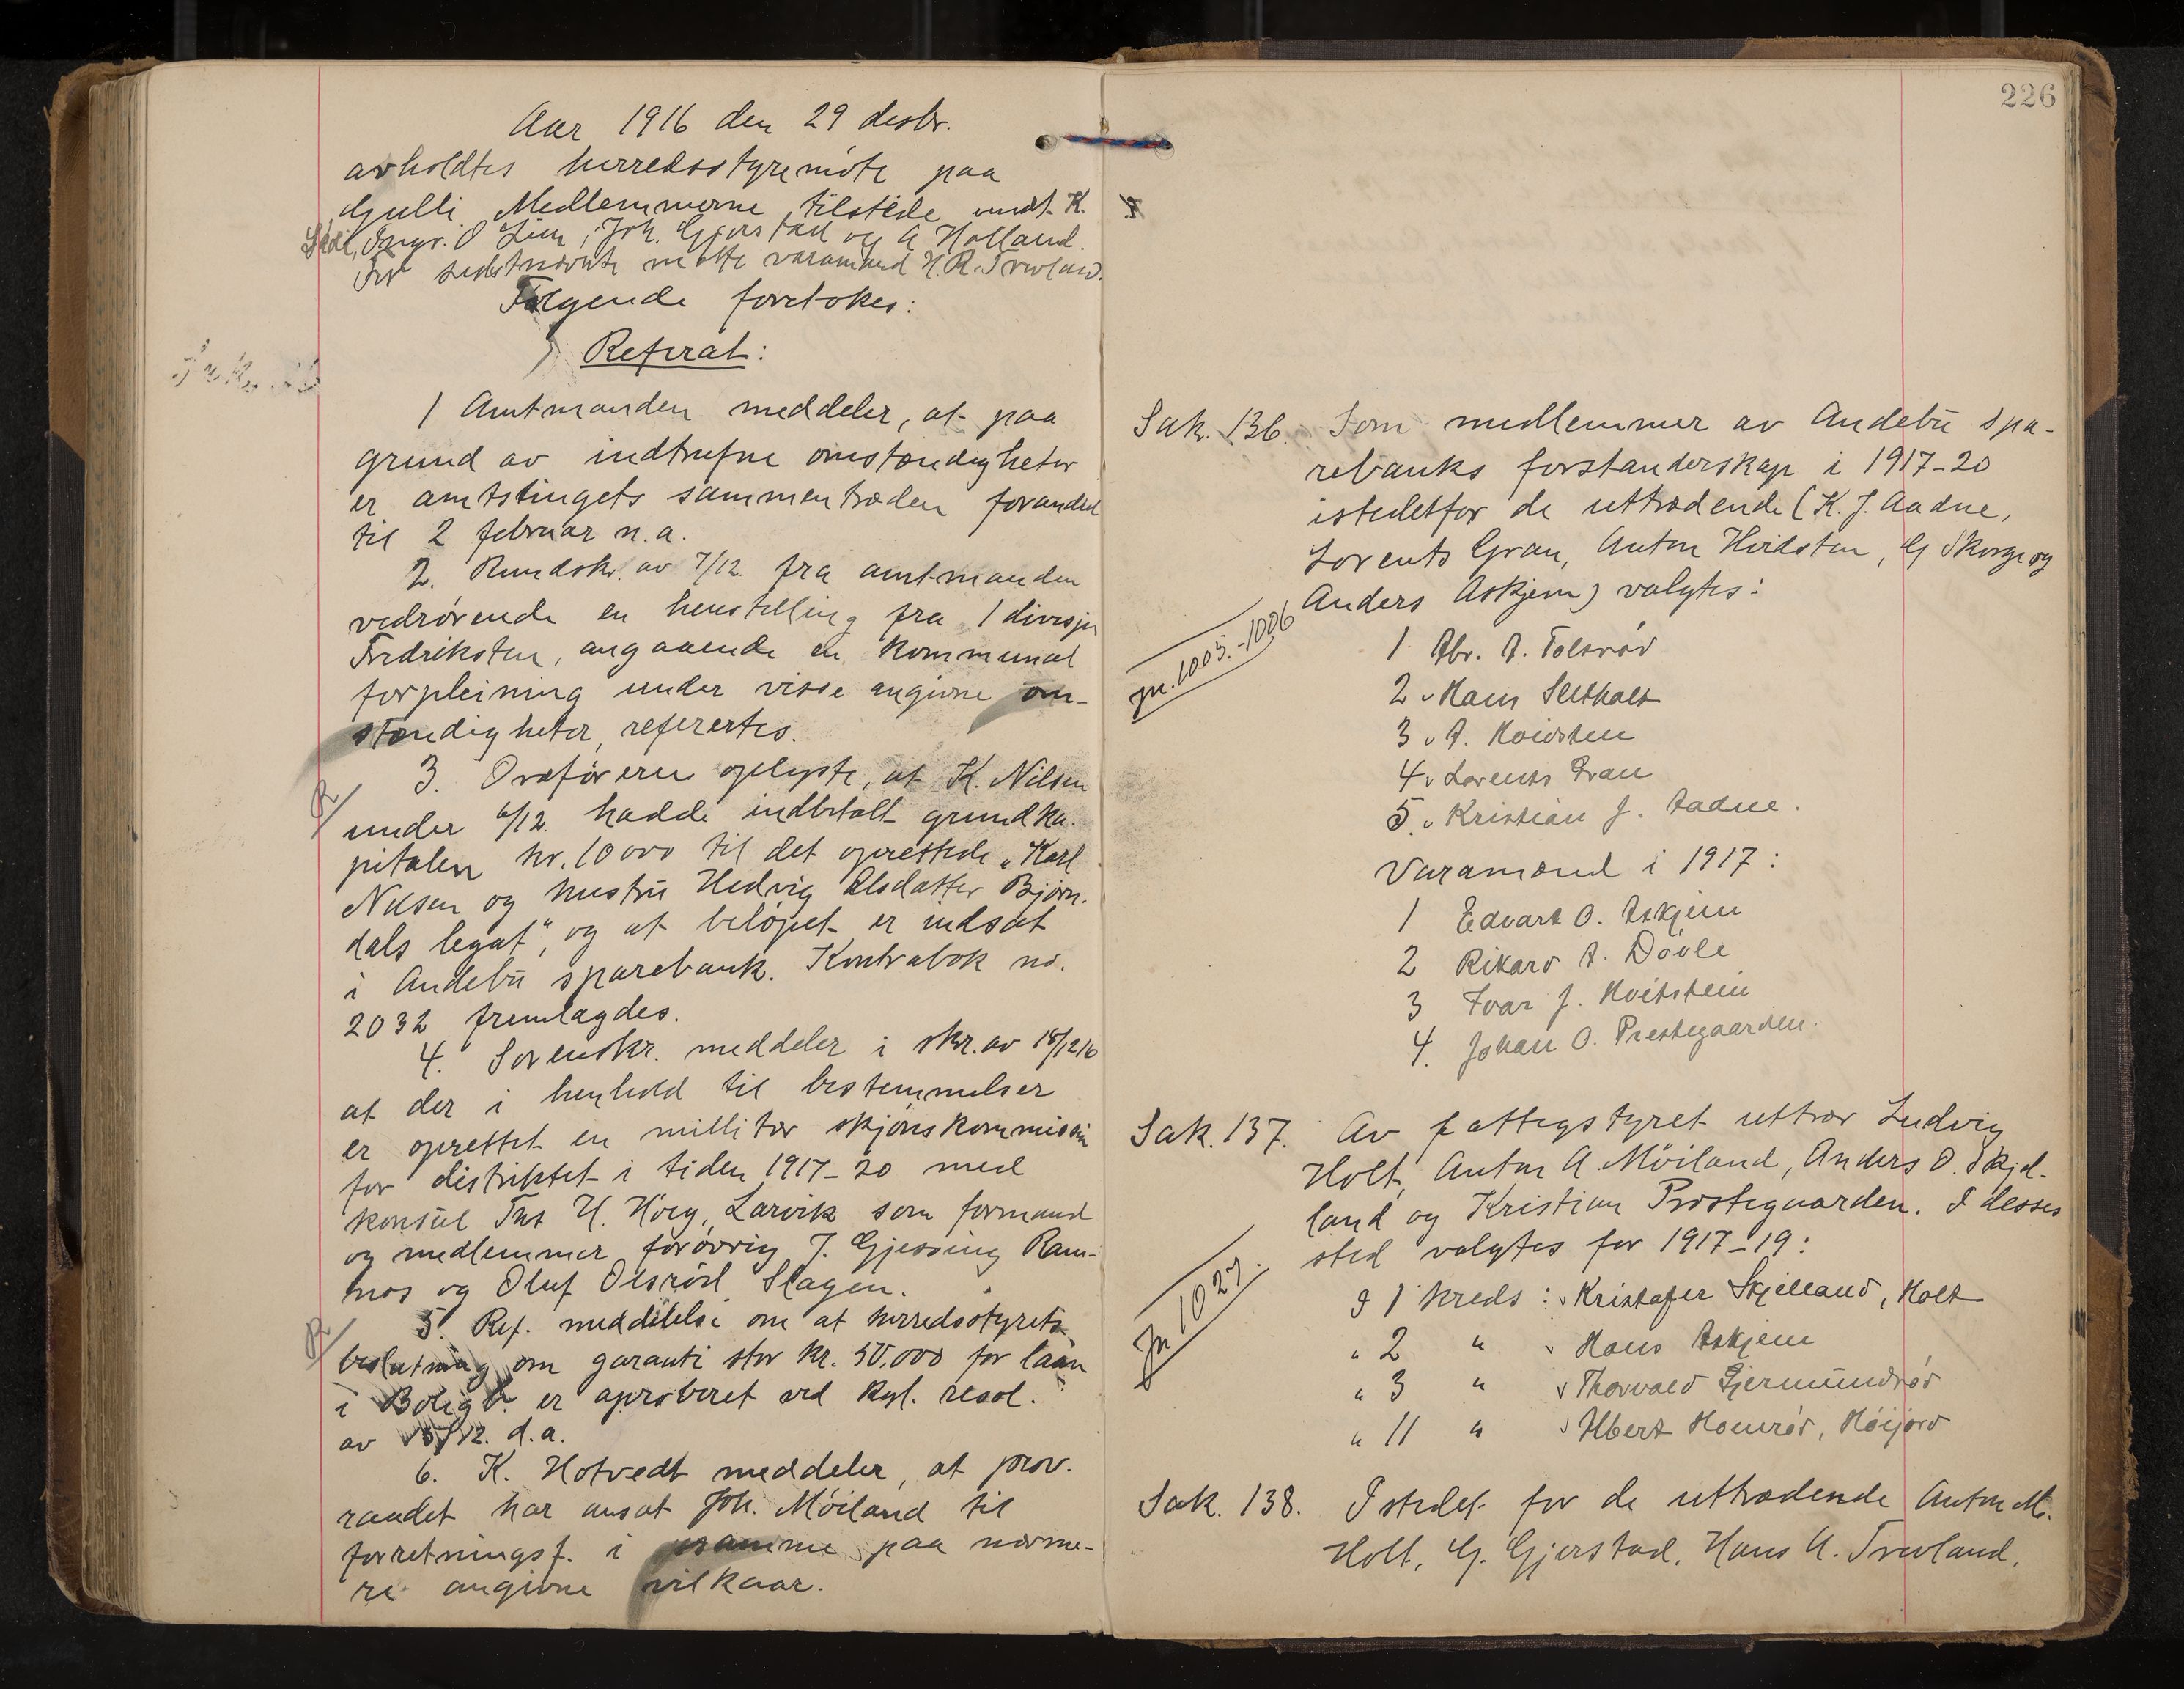 Aar 1916 den 29 desbr.
avholdtes herredsstyremöte paa
Gulli. Medlemmerne tilstede undt. K.
Ingv. O Lien, Joh. Gjerstad og A Holland.
For sidstnævnte mötte varamand H. R. Trevland.
Følgende foretokes:
Referat:
1 Amtmanden meddeler, at paa
grund av indtrufne omstændigheter
er amtstingets sammentræden forandret
til 2 februar n.a.
2. Rundskr. av 7/12. fra amtmanden
vedrörende en henstilling fra 1 divisjon
Fredriksten, angaaende en kommunal
forpleining under visse angivne om-
stændigheter, refererres.
3. Ordföreren oplyste, at K. Nilsen
under 6/12. hadde indbetalt grundka-
pitalen kr. 10000 til det oprettede „Karl
Nilsen og hustru Hedvig Olsdatter Björn-
dals legat", og at belöpet er indsat
i Andebu sparebank. Kontrabok no.
2032 fremlagdes.
4. Sorenskr. meddeler i skr. av 18/12 16
at der i henhold til bestemmelser
er oprettet en millitær skjönskommissin
for distriktet i tiden 1917-20 med
konsul Ths H. Höeg, Larvik som formand
og medlemmer forövrig J. Gjessing Ram-
nes og Oluf Olsröd Slagen.
5. Ref. meddelelse om at herredsstyrets
beslutning om garanti stor kr. 50.000 for laan
i Boligb. er approberet ved kgl. resol.
av 15/12. d.a.
6. K. Hotvedt meddeler, at prov.
raadet har ansat Joh. Möiland til
forretningsf. i samme paa nærme-
re angivne vilkaar.
226
Sak. 136. Som medlemmer av Andebu spa-
rebanks forstanderskap i 1917-20
istedetfor de uttrædende (K. J. Aadne,
Lorents Gran, Anton Hvidsten, G Skorge og
Anders Askjem) valgtes:
jn. 1005.-1006
1 Abr. A. Tolsrød
2 Hans Seltholt
3 A. Hvidsten
4 Lorents Gran
5. Kristian J. Aadne.
Varamænd i 1917:
1 Edvart O. Askjem
2 Rikard A. Døvle
3 Ivar J. Hvitstein
4. Johan O. Prestegaarden.
Sak. 137. Av fattigstyret uttrær Ludvig
Holt, Anton A Möiland, Anders O. Skjel-
land og Kristian Prestegaarden. I desses
sted valgtes for 1917-19:
Jn 1027.
I 1 kreds: Kristofer Skjelland, Holt
" 2 " Hans Askjem
" 3 " Thorvald Gjermundrød
" 11 " Albert Honerød, Høijord
Sak. 138. Istedet for de uttrædende Anton M.
Holt, G. Gjerstad, Hans A. Trevland,